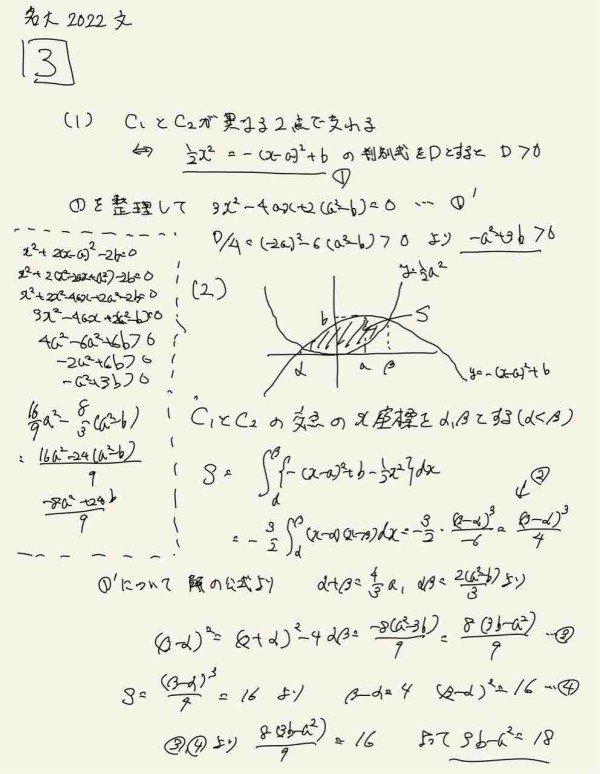 名大 2022 文
3
(1) C₁とC₂が異なる2点で交わる
⇔ ½x² = -(x-a)²+b の判別式をDとすると D>0
①
①を整理して 3x²-4ax+2(a²-b)=0 … ①'
D/4=(-2a)²-6(a²-b)>0 より -a²+3b>0
x²+2(x-a)²-2b=0
x²+2(x²-2ax+a²)-2b=0
x²+2x²-4ax+2a²-2b=0
3x²-4ax+2(a²-b)=0
4a²-6a²+6b>0
-2a²+6b>0
-a²+3b>0
16/9 a² - 8/3 (a²-b)
= (16a²-24(a²-b))/9
(-8a²+24b)/9
(2)
y=½x²
b
S
α
a
β
y=-(x-a)²+b
C₁とC₂の交点のx座標をα,βとする(α<β)
S = ∫_α^β {-(x-a)²+b-½x²}dx
②
= -3/2 ∫_α^β (x-α)(x-β)dx = -3/2 · (β-α)³/-6 = (β-α)³/4
①'について 解の公式より α+β=4/3 a, αβ=2(a²-b)/3 より
(β-α)² = (β+α)²-4αβ = -8(a²-3b)/9 = 8(3b-a²)/9 …③
S = (β-α)³/4 = 16 より β-α=4 (β-α)²=16 …④
③④より 8(3b-a²)/9 = 16 よって 3b-a²=18